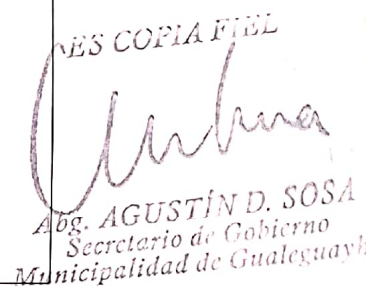 ES COPIA FIEL
Abg. AGUSTÍN D. SOSA
Secretario de Gobierno
Municipalidad de Gualeguayh